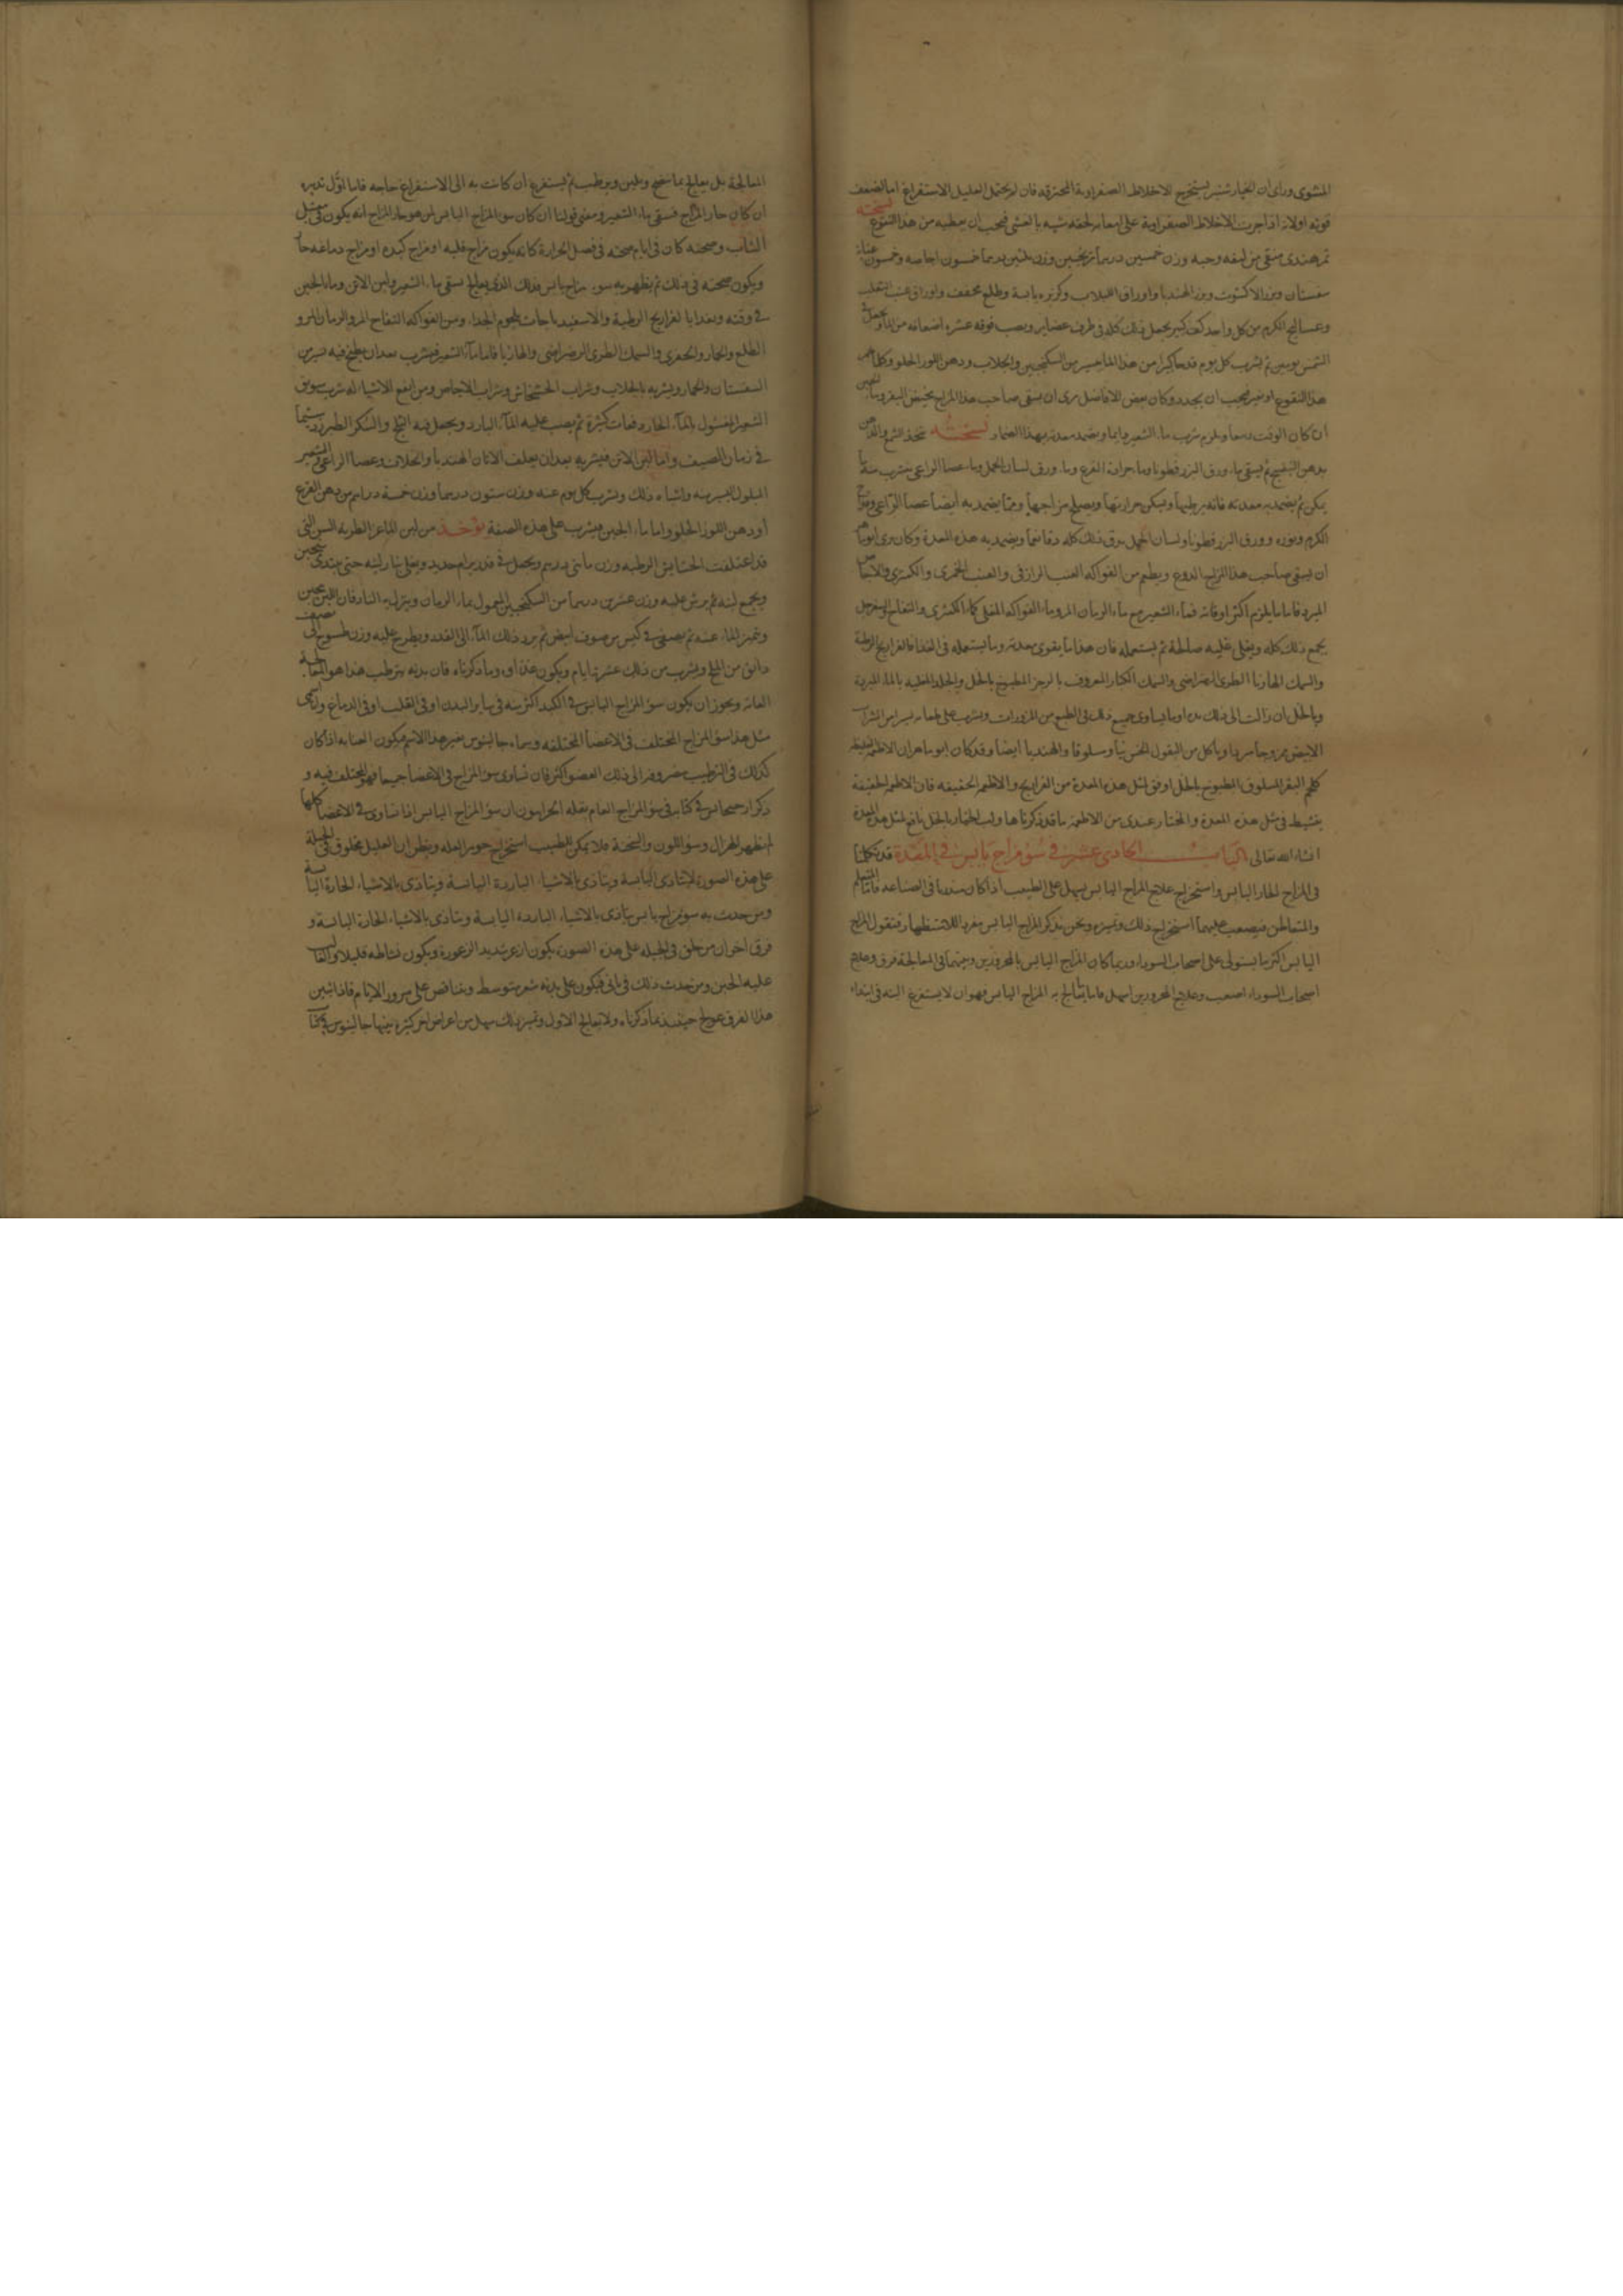 المشوى وراى ان الخيار شنبر يستخرج الاخلاط الصفراوية المحترقه فان لم يحتمل العليل الاستفراغ اما لضعف
قوته اولانه اذا جرت الاخلاط الصفراوية على لحقه شبه بالغشى فيجب ان يعطيه من هذا النقوع نسخته
تمرهندى منقى من ليفه وحبه وزن خمسين درهماً ترنجبين وزن ثلثين درهماً خمسون اجاصه وخمسون عنابة
سفستان وبزر الاكشوت وبزر الهندبا واوراق اللبلاب وكزبره يابسة وطلع مجفف واوراق عنب الثعلب
وعساليج الكرم من كل واحد كف كبير يجعل ذلك كله فى ظرف ويصب فوقه عشره اضعافه من الماء ويجعل فى
الشمس يومين ثم يشرب كل يوم قدحاً كبيرا من هذا الماء بيسير من السكنجبين والجلاب ودهن اللوز الحلو وكلما
هذا النقوع او تغير فيجب ان يجدد وكان بعض الافاضل يرى ان يسقى صاحب هذا المزاج مخيض البقر
ان كان الوقت ويلزم شرب ماء الشعير دايما ويضمد معدته بهذا الضماد نسخته يتخذ الشمع والدهن
بدهن البنفسج ثم يسقى ماء ورق البزر قطونا وماء جرادة القرع وماء ورق لسان الحمل وماء عصا الراعى يشرب منه ما
يمكن ثم يضمد به معدته فانه يرطبها ويسكن حرارتها ويصلح مزاجها ومما يضمد به ايضاً عصا الراعى
الكرم وورق البزر قطونا ولسان الحمل يدق ذلك كله دقا ناعماً ويضمد به هذه المعدة وكان يرى ابو ماهر
ان يسقى صاحب هذا المزاج الدوغ ويطعم من الفواكه العنب الرازقى والعنب الخمرى والكمثرى والاجاص
المبرد فاما ما يلزم اكثر اوقاته فماء الشعير مع ماء الرمان المز وماء الفواكه المغلى كماء الكمثرى والتفاح والسفرجل
يجمع ذلك كله ويغلى غليه ثم يستعمله فان هذا ما يقوى معدته وما يستعمله فى الغذا فالفراريج الرطبة
والسمك الهازبا الطرى الرضراضى والسمك الكبار المعروف المطبوخ بالخل والجلد المغليه بالماء المبرية
وبالخل ان زالت الى ذلك جميع ذلك فى الطبع من المزورات ويشرب على طعامه يسيرا من الشراب
الابيض ممزوجا ويأكل من البقول الخس نياً وسلوقا والهندبا ايضاً وقد كان ابو ماهر ان الاطعمة الغليظة
كلحم البقر المسلوق المطبوخ بالخل اوفق لمثل هذه المعدة من الفراريج والاطعمة الخفيفه فان الاطعمة الخفيفة
فى مثل هذه المعدة والمختار عندى من الاطعمة ما قد ذكرناها ولب الخيار بالخل نافع لمثل هذه المعدة
انشاء الله تعالى الباب الحادى عشر فى سوء مزاج يابس فى المعدة قد تكلمنا
فى المزاج الحار اليابس واستخراج علاج المزاج اليابس يسهل على الطبيب اذا كان فى الصناعه فاما المتعلم
فيصعب عليهما استخراج ذلك وتميزه ونحن نذكر المزاج اليابس مفرداً للاستظهار فنقول المزاج
اليابس اكثر ما يستولى على اصحاب السوداء وربما كان المزاج اليابس بالمحرورين وبينهما فى المعالجة فرق وعلاج
اصحاب السوداء اصعب وعلاج المحرورين اسهل فاما ما يعالج به المزاج اليابس فهو ان لا يستفرغ البته فى ابتداء
المعالجة بل يعالج بما ينضج ويلين ويرطب ثم يستفرغ ان كانت به الى الاستفراغ حاجه فاما اول تدبيره
ان كان حار المزاج فسقى ماء الشعير ومعنى قولنا ان كان سوء المزاج اليابس لمن هو حار المزاج انه يكون فى
الشباب وصحته كان فى ايام صحته فى فصل الحرارة كانه يكون مزاج قلبه او مزاج كبده او مزاج دماغه حاراً
ويكون صحته فى ذلك ثم يظهر به سوء مزاج يابس فذلك الذى يعالج بسقى ماء الشعير ولبن الاتن وماء الجبن
فى وقته ويغدا بالفراريج الرطبة والاسفيدباجات بلحوم الجداء ومن الفواكه التفاح المز والرمان المز و
الطلع والجمار والجفرى والسمك الطرى الرضراضى والهازبا فاما ماء الشعير فيشرب بعد ان يطبخ فيه شىء من
السفستان ويشربه بالجلاب وشراب الخشخاش وشراب الاجاص ومن انفع الاشياء له شرب سويق
الشعير المغسول بالماء الحار دفعات كثيرة ثم يصب عليه الماء البارد ويجعل فيه الثلج والسكر الطبرزد سيما
فى زمان الصيف واما لبن الاتن فيشربه بعد ان يعلف الاتان الهندبا والخلاف وعصا الراعى والشعير
المبلول واشباه ذلك ويشرب كل يوم منه وزن ستون درهما وزن خمسة دراهم من دهن القرع
اودهن اللوز الحلو واما ماء الجبن فيشرب على هذه الصفة يوخذ من لبن الماعز الطريه السن التى
قد اعتلفت الحشايش الرطبه وزن مائتى درهم ويجعل فى قدر برام جديد ويغلى بنار لينه حتى
ثم يرش عليه وزن عشرين درهماً من السكنجبين المعمول بماء الرمان وينزل به النار فان اللبن يتجبن
ويتميز الماء عنه ثم يصفى فى كيس من صوف ابيض ثم يرد ذلك الماء الى القدر ويطرح عليه وزن طسوج الى نصف
دانق من الملح ويشرب من ذلك عشرة ايام ويكون غذاوه ما ذكرناه فان بدنه يترطب هذا هو
ويجوز ان يكون سوء المزاج اليابس فى الكبد اكثر منه فى ساير البدن او فى القلب او فى الدماغ
مثل هذا سوء المزاج المختلف فى الاعضا المختلفه وسماه جالينوس بغير هذا الاسم فيكون العنايه اذا كان
كذلك فى الترطيب مصروفه الى ذلك العضو اكثر فان تساوى سوء المزاج فى الاعضا جميعا فهو المختلف فيه و
ذكر ارجيجانس فى كتابه فى سوء المزاج العام نقله الحرانيون ان سوء المزاج اليابس اذا تساوى فى الاعضا كلها
لم يظهر الهزال وسوء اللون والسحنة فلا يمكن الطبيب استخراج جوهر العله ويظن ان العليل مخلوق فى الجبلة
على هذه الصورة يتاذى بالاشياء الباردة اليابسة ويتاذى بالاشياء الحارة اليابسة
ومن حدثت به سوء مزاج يابس يتاذى بالاشياء البارده اليابسة ويتاذى بالاشياء الحارة اليابسة و
فرق اخر ان من خلق فى الجبله على هذه الصورة يكون ازعر شديد الزعورة ويكون نشاطه قليلا والغالب
عليه الجبن ومن تحدث ذلك فى بدنه فيكون على بدنه شعر متوسط ويتناقص على مرور الايام فاذا تبين
هذا الفرق عولج حينئذ بما ذكرناه ولا يعالج الاول وتميز ذلك سهل من اعراض اخر كثيرة بينها جالينوس